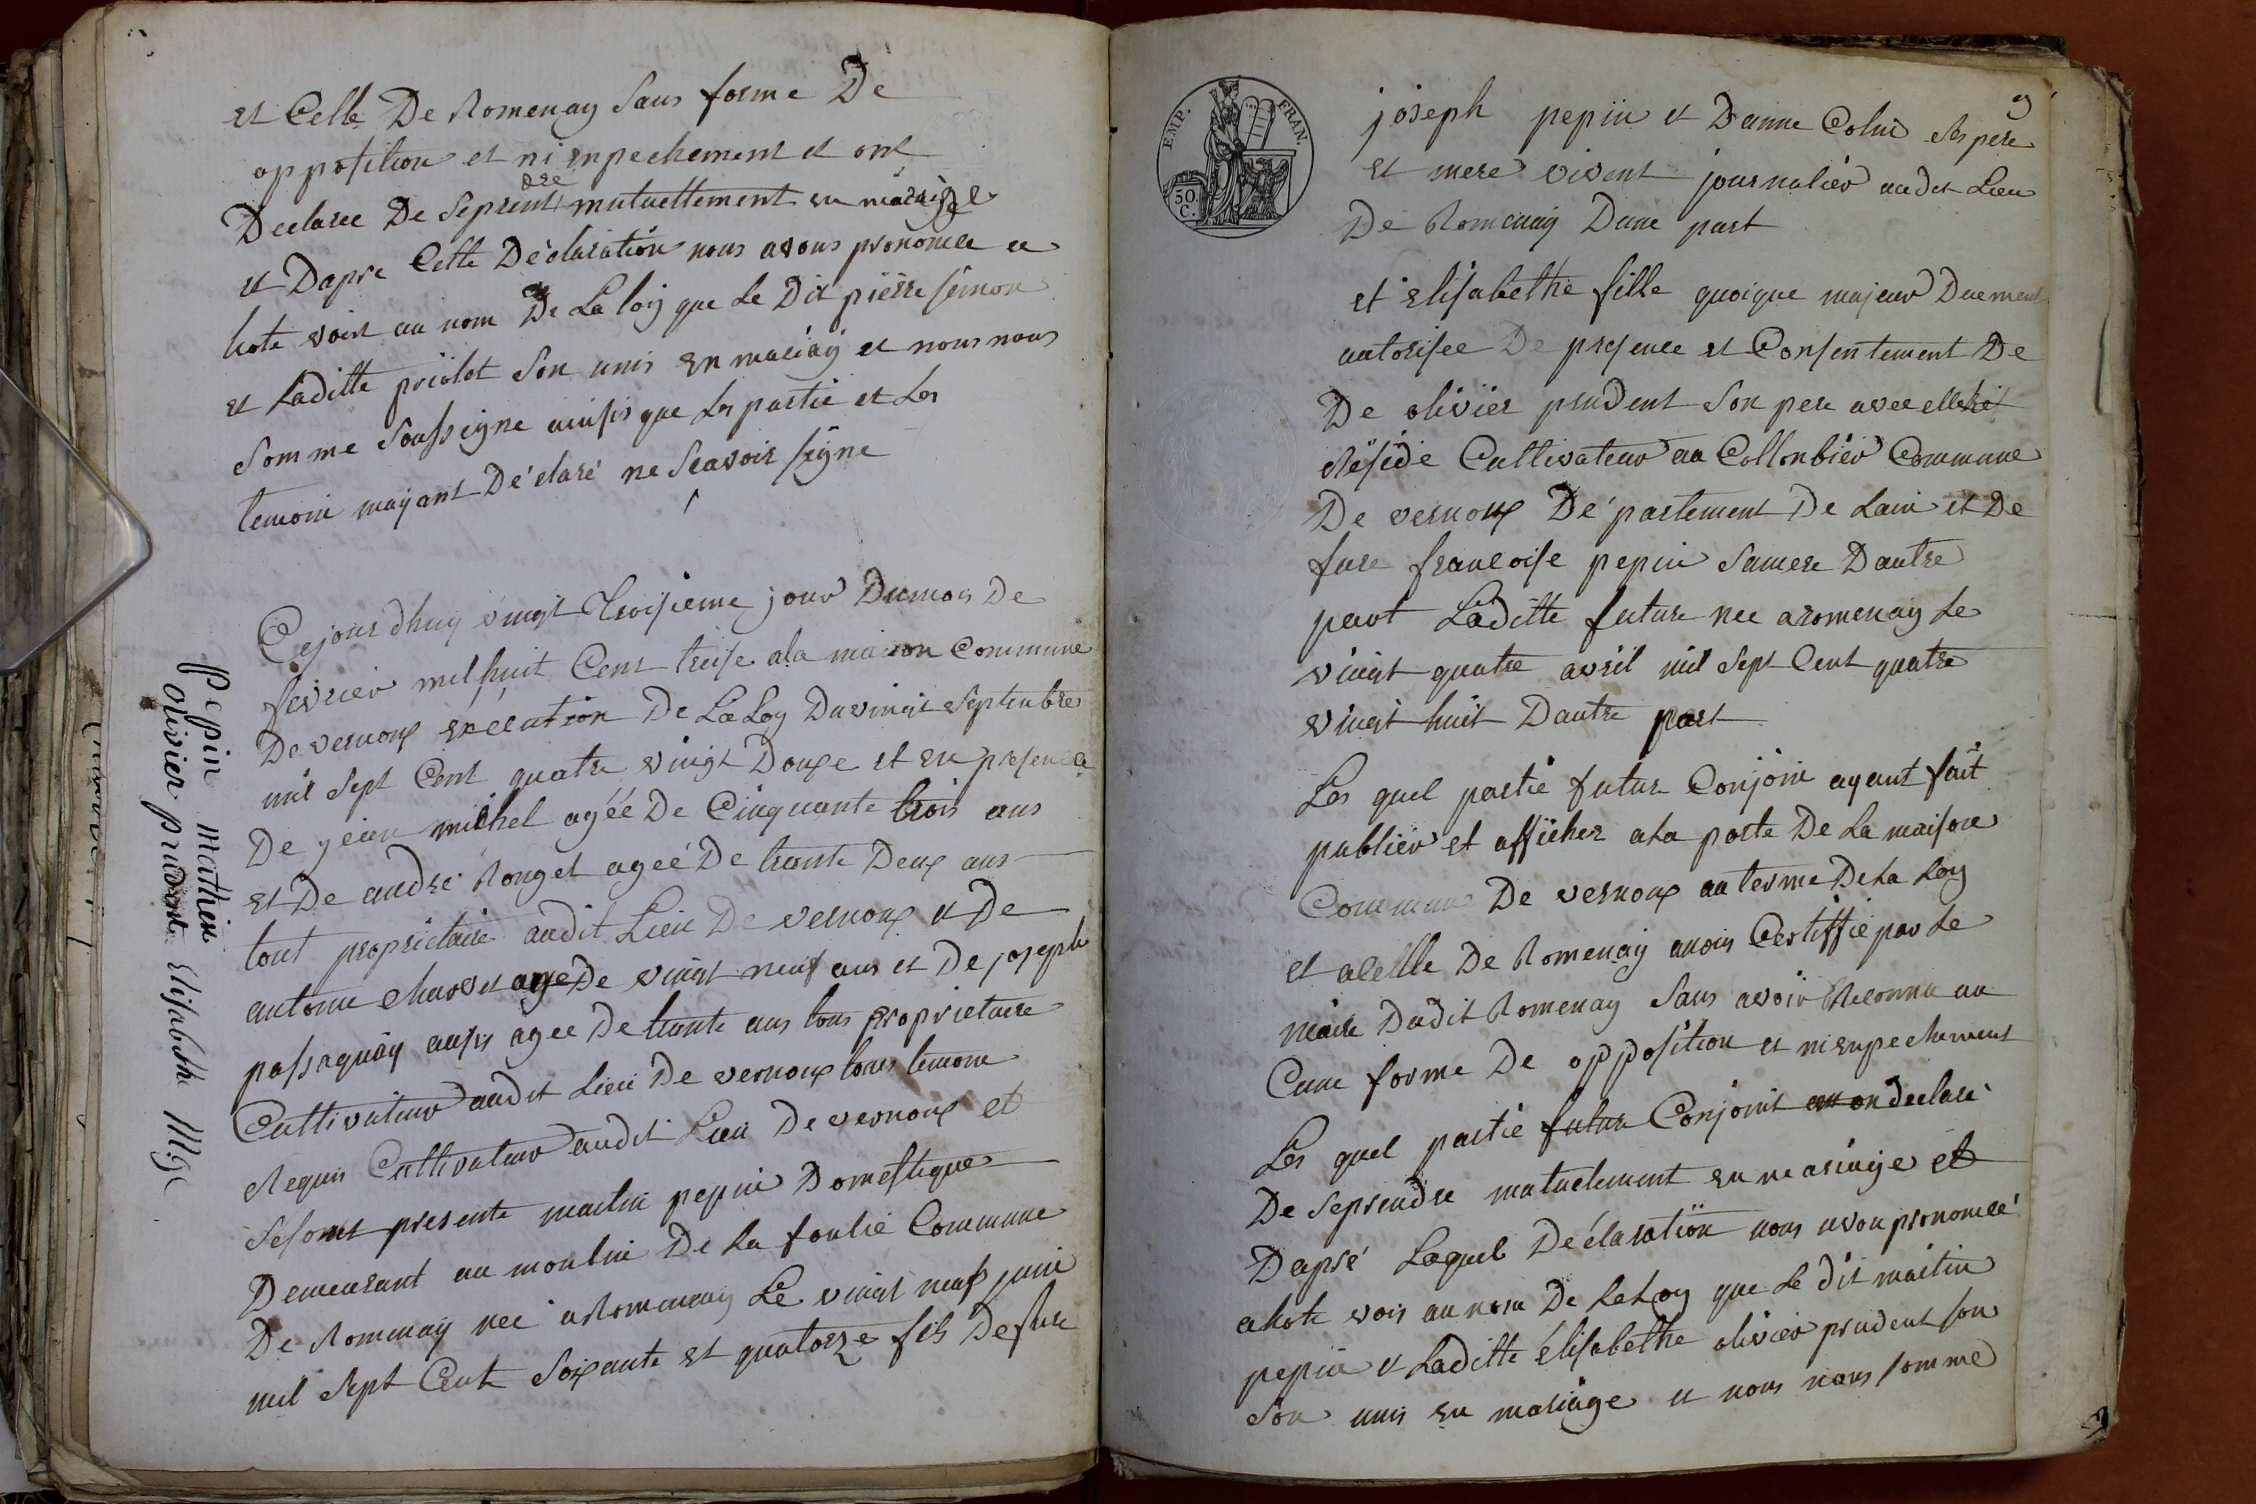 et Celle De Romenay Sans forme De
opposition et ni enpechement et ont
Declaree De Seprent dre mutuettement en mariage
et Dapre Cette Déclaration nous avons prononcé a
hote voix au nom De La loÿ que Le Dit pierre simon
et Laditte priolot Son unis en mariag et nous nous
Somme Soussigne ainsis que Les partie et Les
temoin mayant Déclaré ne Scavoir signe
Cejour dhuy vingt Troisieme jour Dumois De
fevrier mil huit Cent treise ala maison Commune
De vernoux execution De La Loy Du vingt Septenbre
mil Sept Cent quatre vingt Douxe et en presence
De jean michel agéé De Cinquante trois ans
et De andré Rouget ageé De trante Deux ans
tout proprietaire audit Lieu De vernoux et De
antoine Charvet age De vingt neuf ans et De joseph
passaquay aussis agee De trante ans tous proprietaire
Cultivateur audit Lieu De vernoux tous temoin
Requis Cultivateur audit Lieu De vernoux et
Sesont presente martin pepin Domestique
Demeurant au moulin De La foulie Commune
De Romenay neé a Romenay Le vingt neuf juin
mil Sept Cent Soixante et quatorze fils Defure
Pepin Mathieu
olivier prudent Elisabethe Mge
EMP. FRAN.
50. C.
9
joseph pepin et Danne Colin Ses pere
et mere vivent journalier audit Lieu
De Romenay Dune part
et Elisabethe fille quoique majeur Duement
autorisee De presence et Consentement De
De olivier prudent Son pere avec elle
Réside Cultivateur au Collonbier Commune
De vernoux Département De Lain et De
fure francoise pepin Samere Dautre
part Laditte future nee aromenay Le
vingt quatre avril mil Sept Cent quatre
vingt huit Dautre part
Les quel partie futur Conjoin ayant fait
publier et afficher ala porte De La maison
Commune De vernoux au terme DeLa Loy
et acelle De Romenay avois Certiffie par Le
maire Dudit Romenay Sans avoir Reconnu au
Cune forme De opposition et ni enpechement
Les quel partie futur Conjoint on declaré
De Seprendre mutuelement en mariage et
Dapré Laquel Déclaration nous avon prononceé
ahote voix au nom De La Loy que Le dit martin
pepin et Laditte élisabethe olivier prudent son
Son unis en mariage et nous nous somme